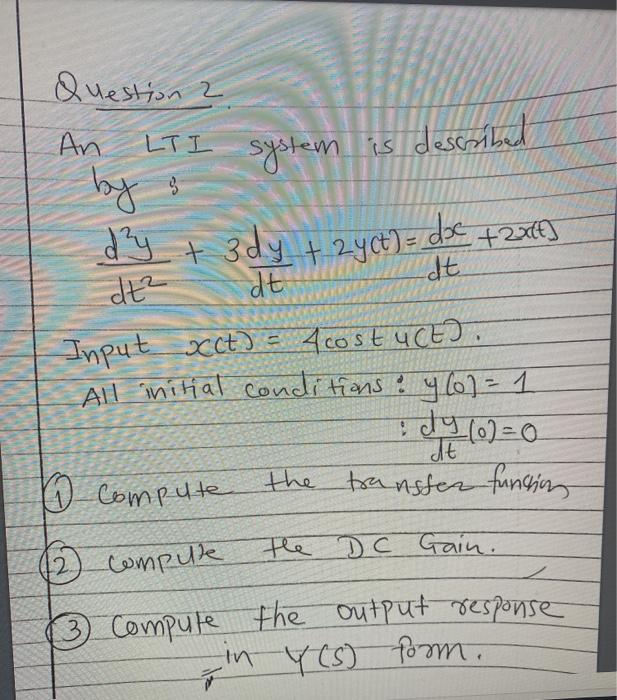 Question 2.
An LTI system is described
by :
d²y/dt² + 3dy/dt + 2y(t) = dx/dt + 2x(t)
Input x(t) = 4cost u(t).
All initial conditions : y(0) = 1
: dy/dt (0) = 0
① Compute the transfer function
② compute the DC Gain.
③ Compute the output response
in Y(s) form.